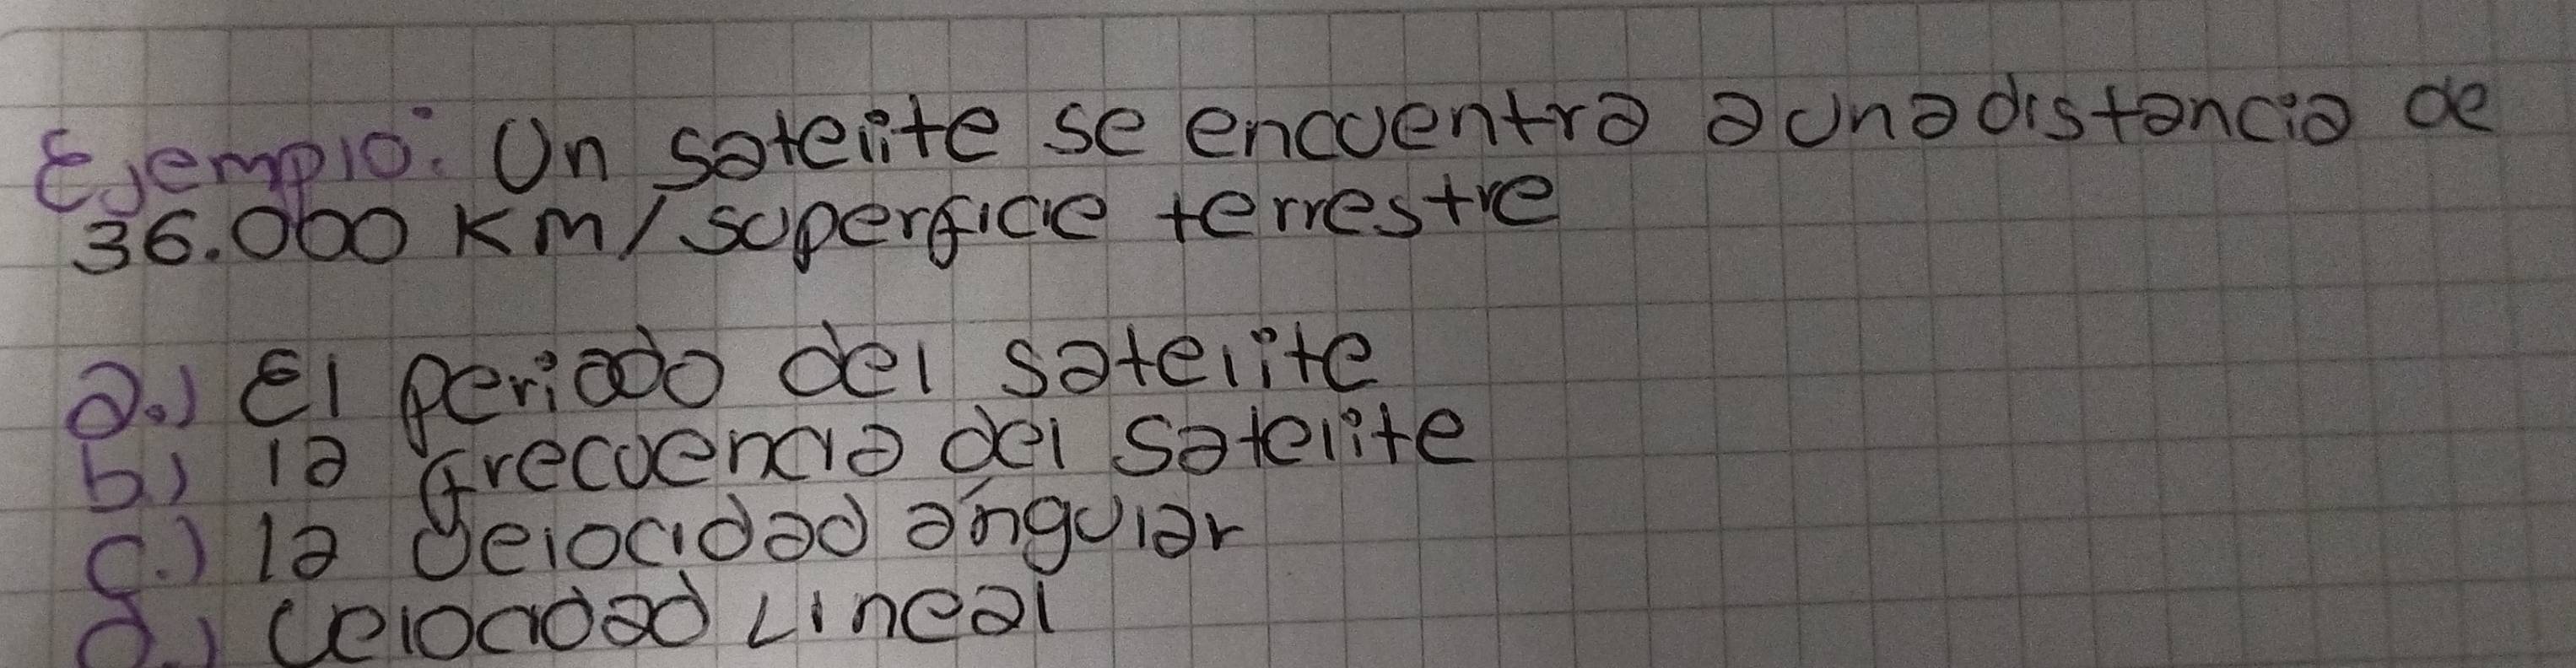 Ejemplo: Un satelite se encuentra a una distancia de
36.000 Km/superficie terrestre
a.) El periodo del satelite
b.) la frecuencia del satelite
c.) la velocidad ángular
d.) Velocidad Lineal